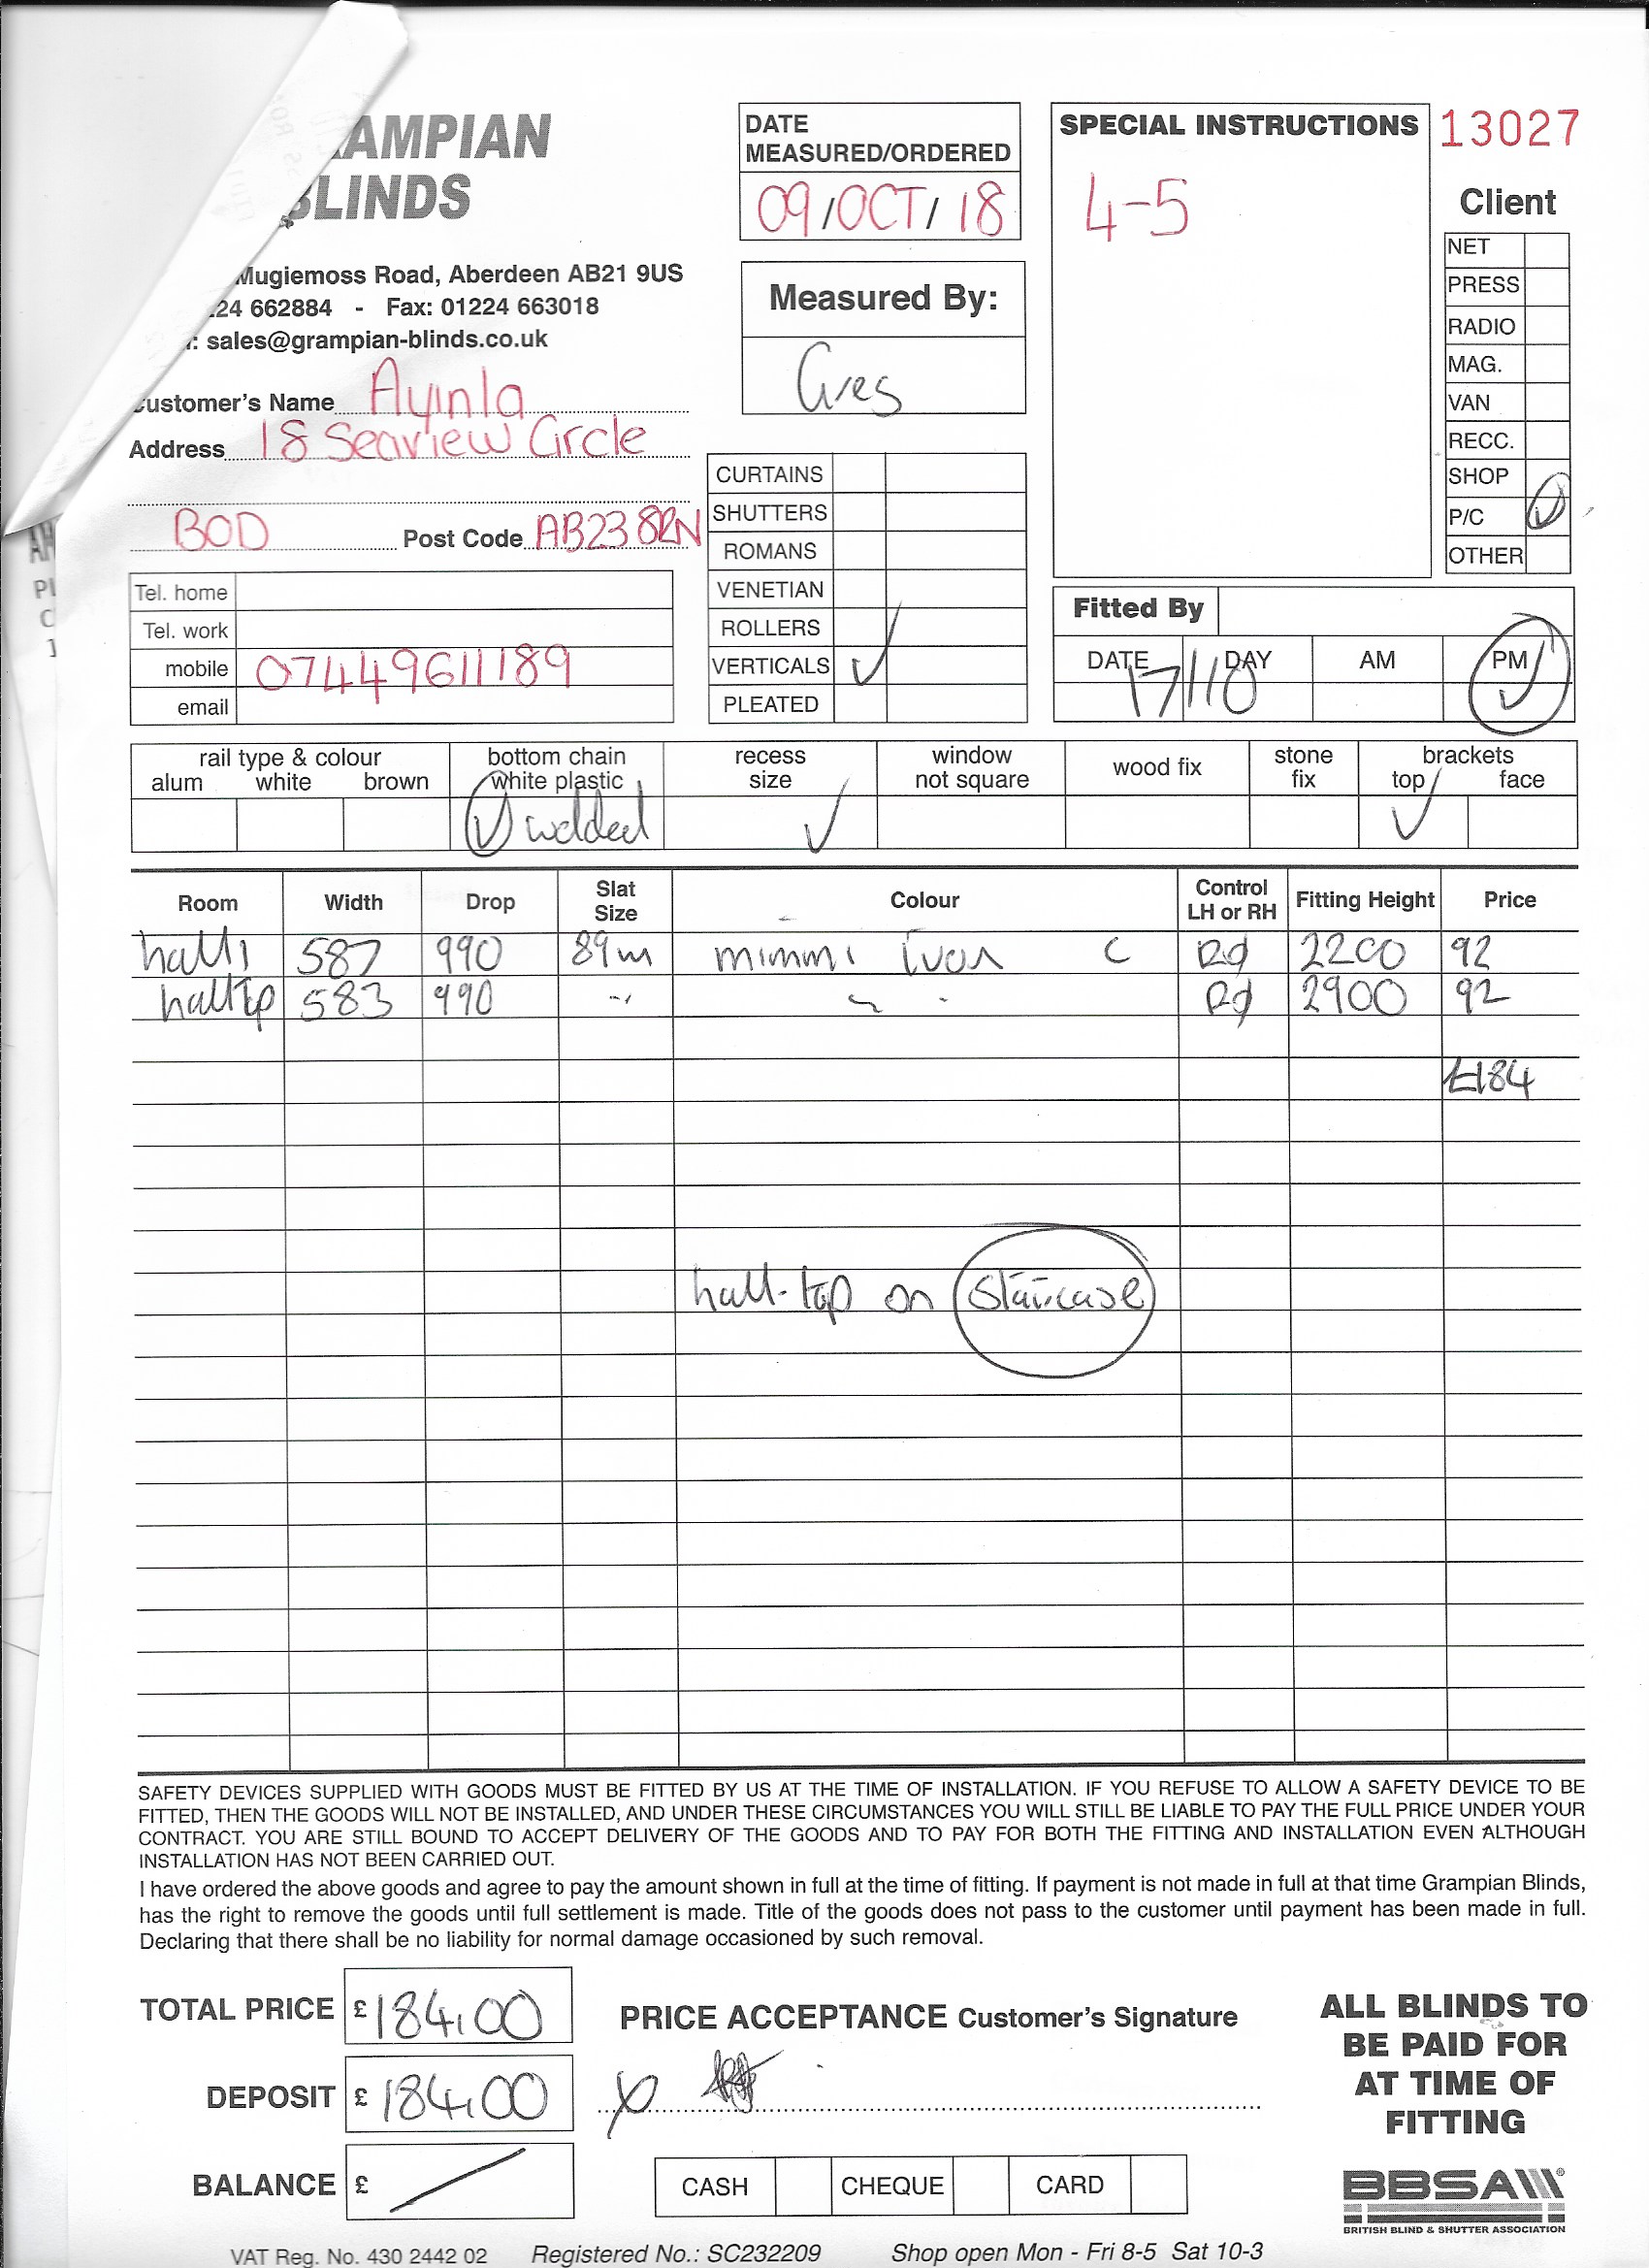 AMPIAN
BLINDS
Mugiemoss Road, Aberdeen AB21 9US
24 662884 - Fax: 01224 663018
: sales@grampian-blinds.co.uk
Customer's Name Ayinla
Address 18 Seaview Circle
BOD Post Code AB23 8RN
Tel. home
Tel. work
mobile 07449611189
email
DATE
MEASURED/ORDERED
09/OCT/18
Measured By:
CURTAINS
SHUTTERS
ROMANS
VENETIAN
ROLLERS
VERTICALS ✓
PLEATED
SPECIAL INSTRUCTIONS
4-5
13027
Client
NET
PRESS
RADIO
MAG.
VAN
RECC.
SHOP
P/C ✓
OTHER
Fitted By
DATE DAY AM PM
17/10 ✓
rail type & colour bottom chain recess window wood fix stone brackets
alum white brown white plastic size not square fix top face
✓ welded ✓ ✓
Room Width Drop Slat Size Colour Control LH or RH Fitting Height Price
hall 1 587 990 89m mimmi C Rd 2200 92
hall top 583 990 Rd 2900 92
£184
hall-top on staircase
SAFETY DEVICES SUPPLIED WITH GOODS MUST BE FITTED BY US AT THE TIME OF INSTALLATION. IF YOU REFUSE TO ALLOW A SAFETY DEVICE TO BE
FITTED, THEN THE GOODS WILL NOT BE INSTALLED, AND UNDER THESE CIRCUMSTANCES YOU WILL STILL BE LIABLE TO PAY THE FULL PRICE UNDER YOUR
CONTRACT. YOU ARE STILL BOUND TO ACCEPT DELIVERY OF THE GOODS AND TO PAY FOR BOTH THE FITTING AND INSTALLATION EVEN ALTHOUGH
INSTALLATION HAS NOT BEEN CARRIED OUT.
I have ordered the above goods and agree to pay the amount shown in full at the time of fitting. If payment is not made in full at that time Grampian Blinds,
has the right to remove the goods until full settlement is made. Title of the goods does not pass to the customer until payment has been made in full.
Declaring that there shall be no liability for normal damage occasioned by such removal.
TOTAL PRICE £ 184.00
DEPOSIT £ 184.00
BALANCE £ /
PRICE ACCEPTANCE Customer's Signature
x
CASH CHEQUE CARD
ALL BLINDS TO
BE PAID FOR
AT TIME OF
FITTING
BBSA
BRITISH BLIND & SHUTTER ASSOCIATION
VAT Reg. No. 430 2442 02 Registered No.: SC232209 Shop open Mon - Fri 8-5 Sat 10-3